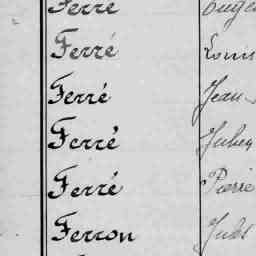 Ferré Eugè
Ferré Louis
Ferré Jean
Ferré Julien
Ferré Pierre
Ferron Jules